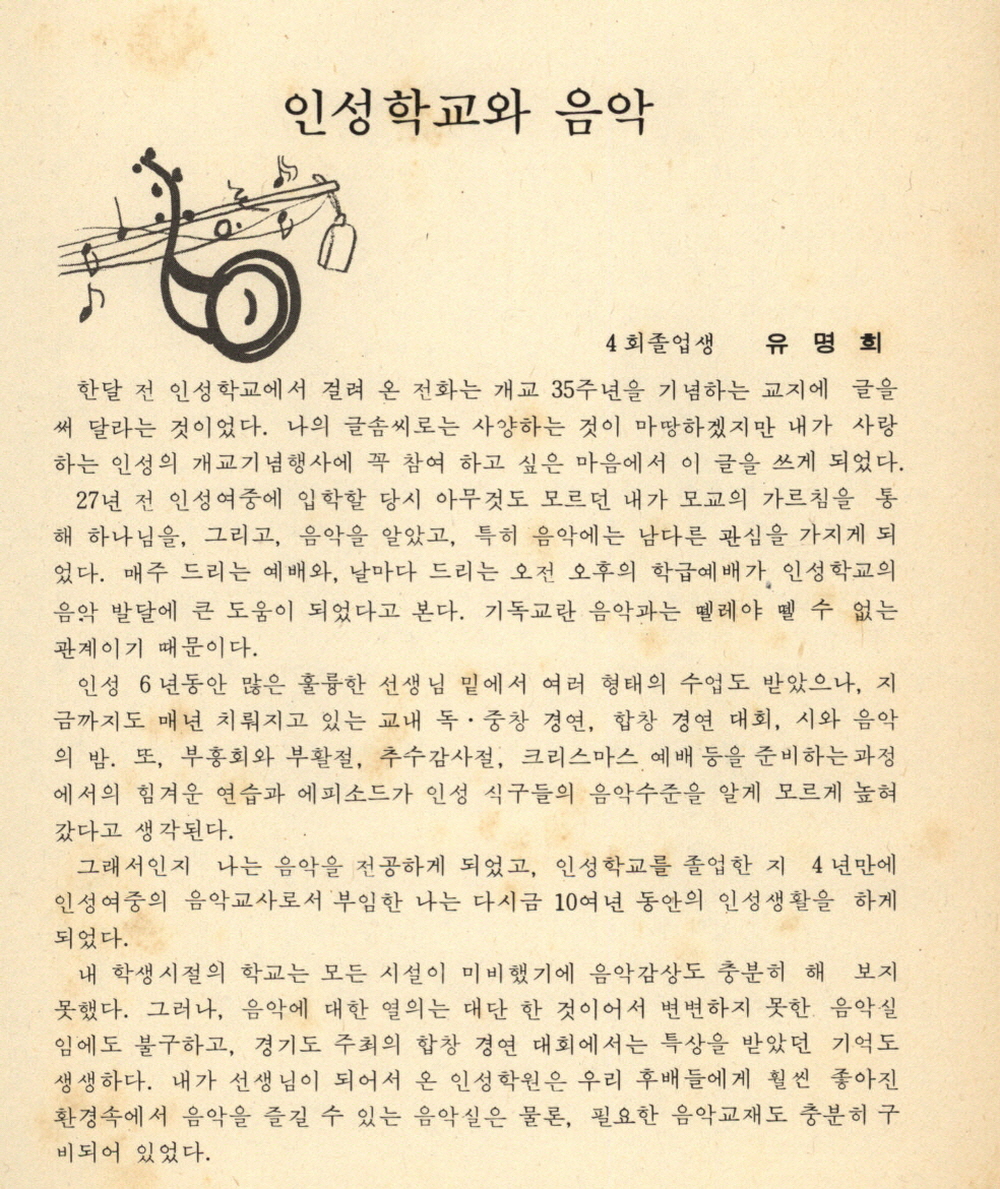 인성학교와 음악
4회졸업생 유명희
한달 전 인성학교에서 걸려 온 전화는 개교 35주년을 기념하는 교지에 글을
써 달라는 것이었다. 나의 글솜씨로는 사양하는 것이 마땅하겠지만 내가 사랑
하는 인성의 개교기념행사에 꼭 참여 하고 싶은 마음에서 이 글을 쓰게 되었다.
27년 전 인성여중에 입학할 당시 아무것도 모르던 내가 모교의 가르침을 통
해 하나님을, 그리고, 음악을 알았고, 특히 음악에는 남다른 관심을 가지게 되
었다. 매주 드리는 예배와, 날마다 드리는 오전 오후의 학급예배가 인성학교의
음악 발달에 큰 도움이 되었다고 본다. 기독교란 음악과는 뗄레야 뗄 수 없는
관계이기 때문이다.
인성 6년동안 많은 훌륭한 선생님 밑에서 여러 형태의 수업도 받았으나, 지
금까지도 매년 치뤄지고 있는 교내 독·중창 경연, 합창 경연 대회, 시와 음악
의 밤. 또, 부흥회와 부활절, 추수감사절, 크리스마스 예배 등을 준비하는 과정
에서의 힘겨운 연습과 에피소드가 인성 식구들의 음악수준을 알게 모르게 높혀
갔다고 생각된다.
그래서인지 나는 음악을 전공하게 되었고, 인성학교를 졸업한 지 4년만에
인성여중의 음악교사로서 부임한 나는 다시금 10여년 동안의 인성생활을 하게
되었다.
내 학생시절의 학교는 모든 시설이 미비했기에 음악감상도 충분히 해 보지
못했다. 그러나, 음악에 대한 열의는 대단 한 것이어서 변변하지 못한 음악실
임에도 불구하고, 경기도 주최의 합창 경연 대회에서는 특상을 받았던 기억도
생생하다. 내가 선생님이 되어서 온 인성학원은 우리 후배들에게 훨씬 좋아진
환경속에서 음악을 즐길 수 있는 음악실은 물론, 필요한 음악교재도 충분히 구
비되어 있었다.